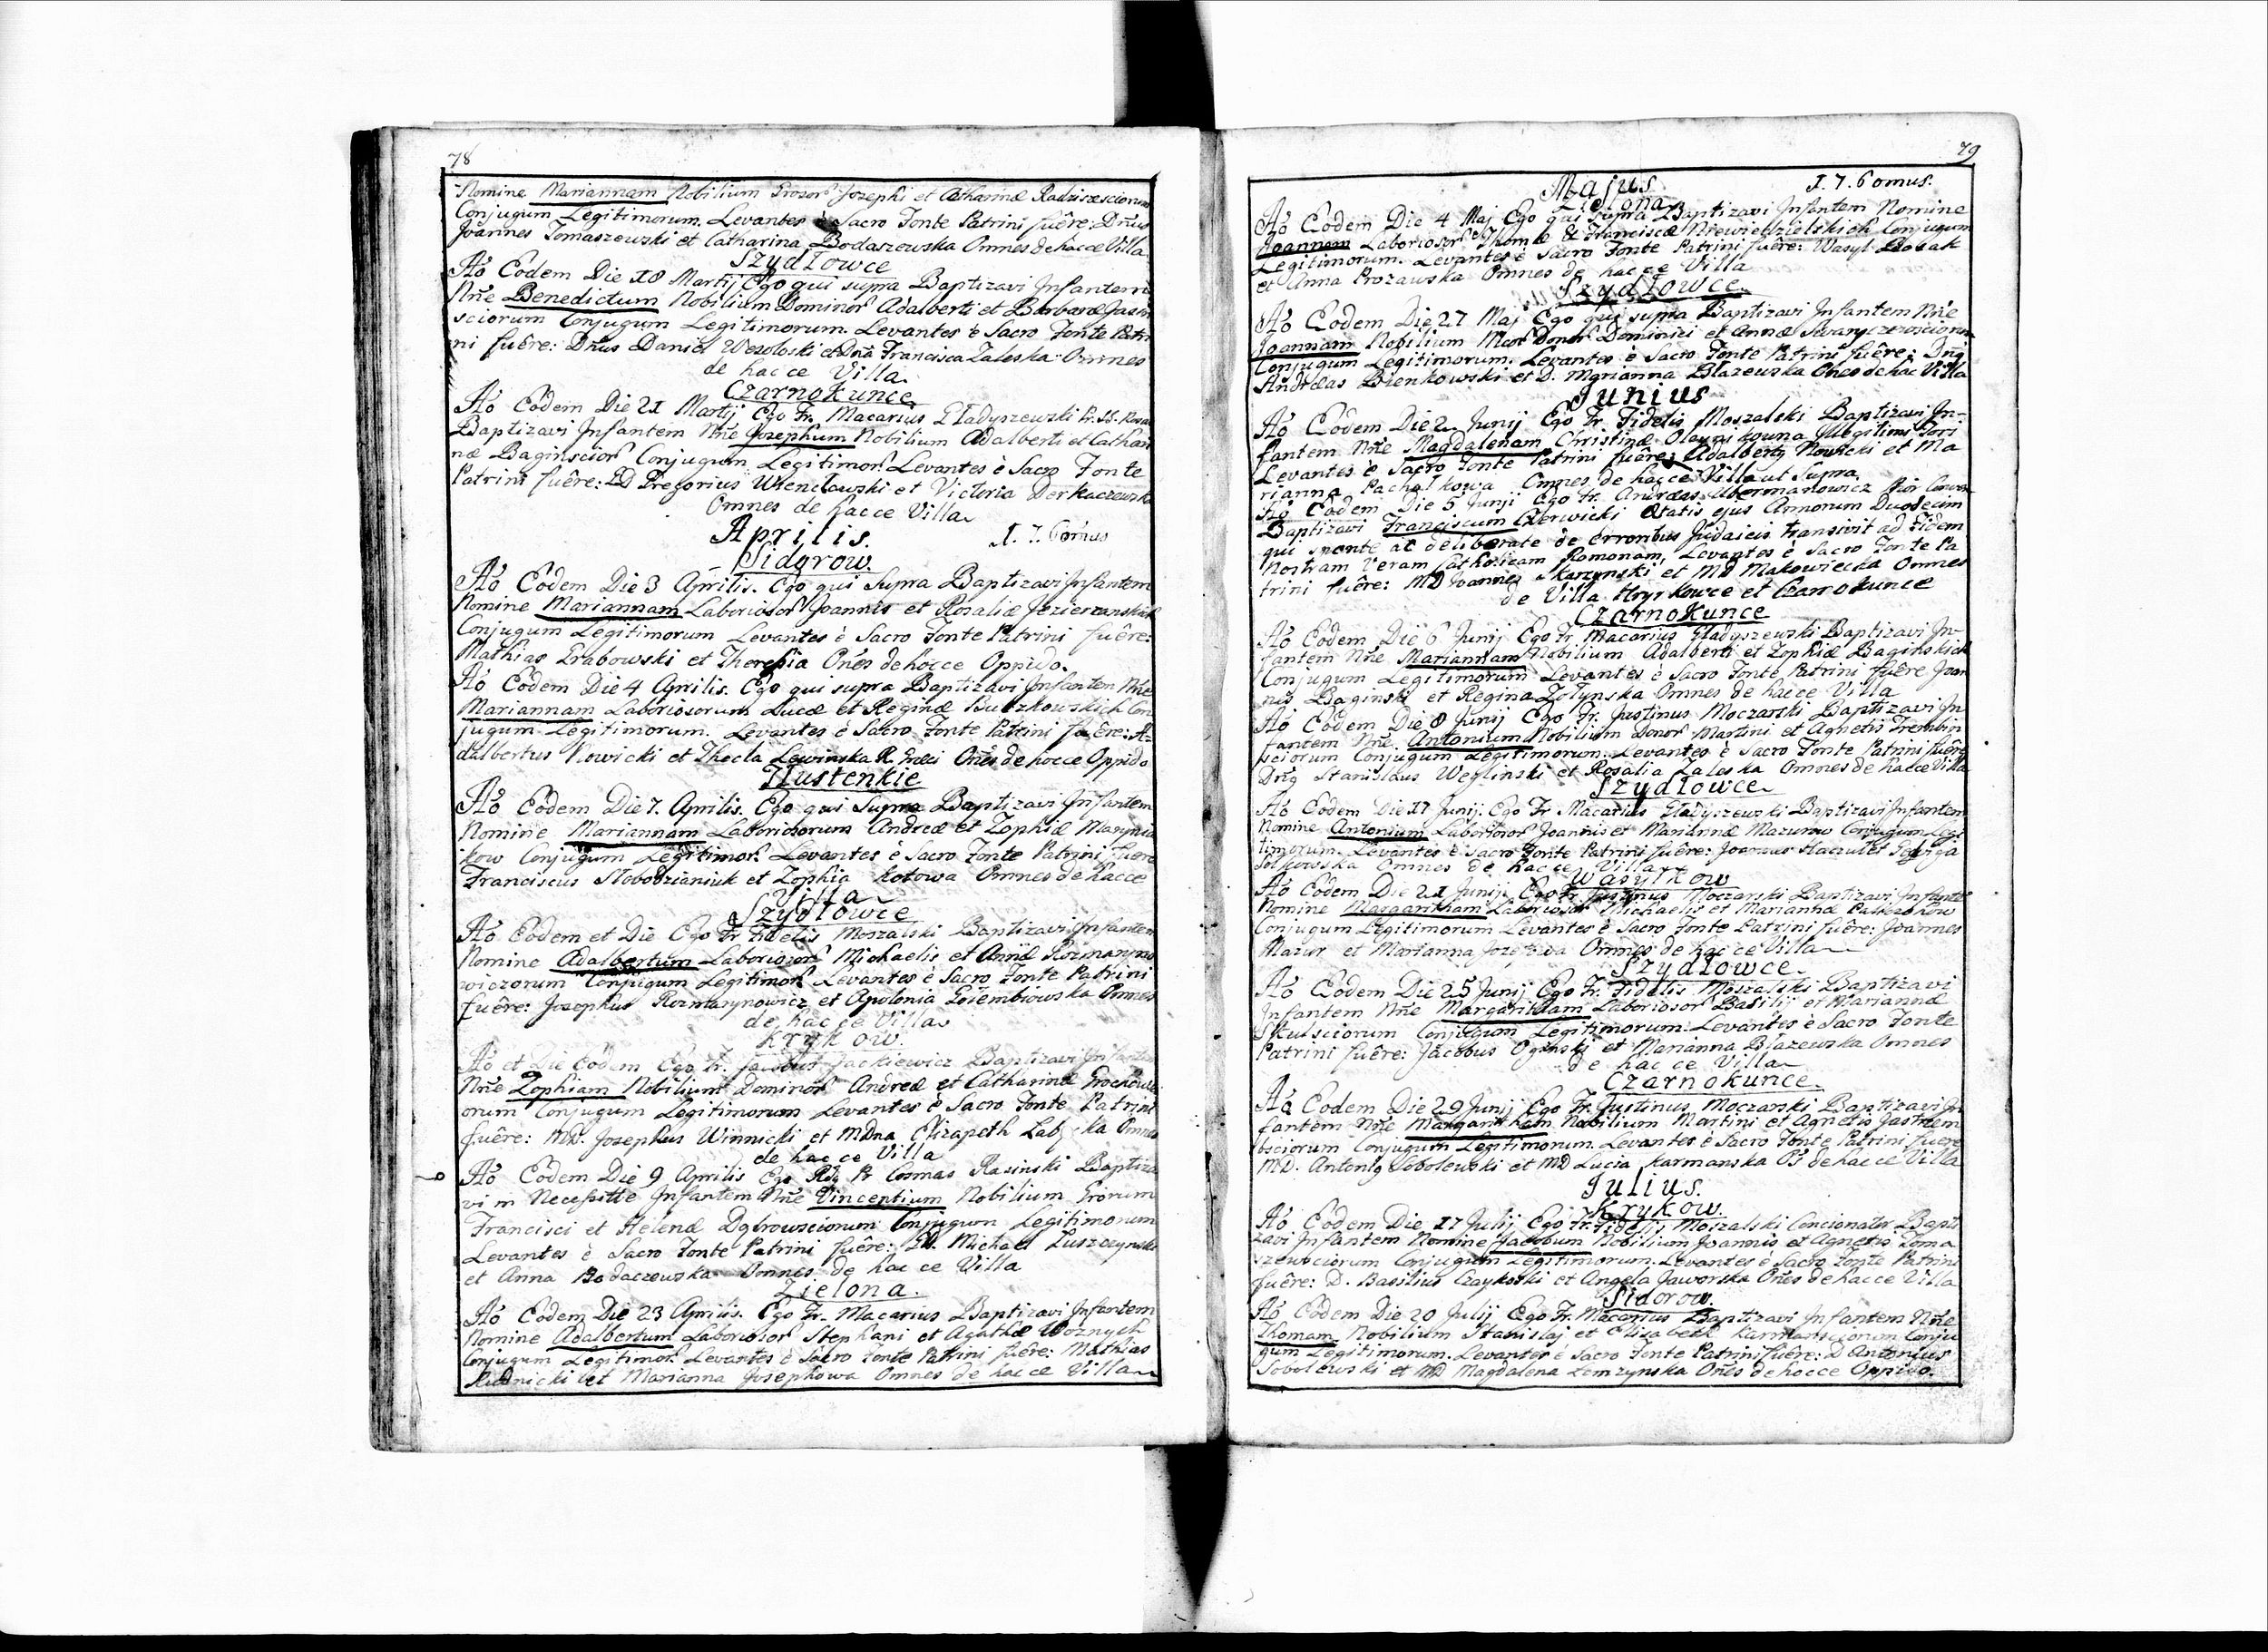 78
Nomine Mariannam Nobilium Josephi et Catharinæ
Conjugum Legitimorum. Levantes è Sacro Fonte Patrini fuêre: Dnus
Joannes Tomaszewski et Catharina Bodaszewska Omnes de hacce Villa
Szydłowce
Aó Eodem Die 18 Martij Ego qui supra Baptizavi Infantem
Nñe Benedictum Nobilium Dominor Adalberti et Barbaræ Jasin
sciorum Conjugum Legitimorum. Levantes è Sacro Fonte Patri
ni fuêre: Dnus Daniel Wesoloski et Dna Francisca Zaleska Omnes
de hac ce Villa
Czarnokunce
Aó Eodem Die 21 Martij Ego Fr. Macarius Gładyszewski
Baptizavi Infantem Nñe Josephum Nobilium Adalberti et Cathari
næ Baginscior Conjugum Legitimor Levantes è Sacro Fonte
Patrini fuêre: D Gregorius et Victoria Derkaczewska
Omnes de hac ce Villa
Aprilis. 1.7.6 omus
Sidorow.
Aó Eodem Die 3 Aprilis. Ego qui Supra Baptizavi Infantem
Nomine Mariannam Laboriosor Joannis et Rosaliæ
Conjugum Legitimorum Levantes è Sacro Fonte Patrini fuêre:
Mathias Grabowski et Theresia Oñes de hocce Oppido.
Aó Eodem Die 4 Aprilis. Ego qui supra Baptizavi Infantem Nñe
Mariannam Laboriosorum Lucæ et Reginæ Buczkowskich Con
jugum Legitimorum. Levantes è Sacro Fonte Patrini fuêre: A-
dalbertus Nowicki et Thecla Lewinska Oñes de hocce Oppido
Hustenkie
Aó Eodem Die 7. Aprilis. Ego qui Supra Baptizavi Infantem
Nomine Mariannam Laboriosorum Andreæ et Zophiæ
ikow Conjugum Legitimor Levantes è Sacro Fonte Patrini fuere
Franciscus Slobodzianiuk et Zophia Kotowa Omnes de hacce
Villa
Szydłowce
Aó Eodem et Die Ego Fr Fidelis Moszalski Baptizavi Infantem
Nomine Adalbertum Laboriosor Michaelis et Annæ Rozmaryno
wiczorum Conjugum Legitimor Levantes è Sacro Fonte Patrini
fuêre: Josephus Rozmarynowicz et Apolonia Omnes
de hac ce Villa
Krykow.
Aó et Die Eodem Ego Fr. Jackiewicz Baptizavi Infantem
Nñe Zophiam Nobilium Dominor Andreæ et Catharinæ
orum Conjugum Legitimorum Levantes è Sacro Fonte Patrini
fuêre: MD. Josephus Winnicki et MDna Elizapeth Omnes
de hac ce Villa
Aó Eodem Die 9 Aprilis Ego Cosmas Rasinski Baptiza
vi in Necessitte Infantem Nñe Vincentium Nobilium
Francisci et Helenæ Dąbrowsciorum Conjugum Legitimorum
Levantes è Sacro Fonte Patrini fuêre: Michael
et Anna Bodaczewska Omnes de hac ce Villa
Zielona.
Aó Eodem Die 23 Aprilis. Ego Fr. Macarius Baptizavi Infantem
Nomine Adalbertum Laboriosor Stephani et Agathæ Woznych
Conjugum Legitimor. Levantes è Sacro Fonte Patrini fuêre: Mathias
Rudnicki et Marianna Josephowa Omnes de hac ce Villa
79
Majus. 1.7.6 omus.
Zielona
Aó Eodem Die 4 Maj Ego qui Supra Baptizavi Infantem Nomine
Joannem Laboriosor Thomæ & Franciscæ Niewiedzielskich Conjugum
Legitimorum. Levantes è Sacro Fonte Patrini fuêre: Wasyl
et Anna Omnes de hac ce Villa
Szydłowce.
Aó Eodem Die 27 Maj Ego qui supra Baptizavi Infantem Nñe
Joannam Nobilium Dominici et Annæ
Conjugum Legitimorum. Levantes è Sacro Fonte Patrini fuêre:
Andreas Bienkowski et D. Marianna Blazewska Oñes de hac Villa
Junius
Aó Eodem Die 2 Junij Ego Fr. Fidelis Moszalski Baptizavi In-
fantem Nñe Magdalenam Christinæ Illegitimi Tori
Levantes è Sacro Fonte Patrini fuêre: Adalbertg Nowicki et Ma
rianna Omnes de hacce Villa ut Supra.
Aó Eodem Die 5 Junij Ego Fr. Andreas
Baptizavi Franciscum Ætatis ejus Annorum Duodecim
qui sponte ac deliberate de erroribus Judaicis transivit ad Fidem
Nostram Veram Catholicam Romonam, Levantes è Sacro Fonte Pa
trini fuêre: MD Joannes Skarzynski et MD Makowiecka Omnes
de Villa et Czarnokunce
Czarnokunce
Aó Eodem Die 6 Junij Ego Fr Macarius Gladyszewski Baptizavi In-
fantem Nñe Mariannam Nobilium Adalberti et Zophiæ Baginskich
Conjugum Legitimorum Levantes è Sacro Fonte Patrini fuêre Joan
nes Baginski et Regina Omnes de hac ce Villa
Aó Eodem Die 8 Junij Ego Fr. Justinus Moczarski Baptizavi In
fantem Nñe. Antonium Nobilium Donor Martini et Agnetis Trembin
sciorum Conjugum Legitimorum. Levantes è Sacro Fonte Patrini fuêre
Stanislaus Weglinski et Rosalia Zaleska Omnes de hacce Villa
Szydłowce
Aó Eodem Die 17 Junij. Ego Fr Macarius Gladyszewski Baptizavi Infantem
Nomine Antonium Laboriosor Joannis et Mariannæ Mazurow Conjugum Legi
timorum. Levantes è Sacro Fonte Patrini fuêre: Joannes
Omnes de hac ce Villa
Wasylkow
Aó Eodem Die 21 Junij Ego Fr. Justinus Moczarski Baptizavi Infantem
Nomine Margaritham Laboriosor Michaelis et Mariannæ
Conjugum Legitimorum Levantes è Sacro Fonte Patrini fuêre: Joannes
Mazur et Marianna Omnes de hac ce Villa
Szydłowce.
Aó Eodem Die 25 Junij Ego Fr. Fidelis Moszalski Baptizavi
Infantem Nñe Margaritham Laboriosor Basilij et Mariannæ
Conjugum Legitimorum. Levantes è Sacro Fonte
Patrini fuêre: Jacobus Oginski et Marianna Blazewska Omnes
de hac ce Villa
Czarnokunce.
Aó Eodem Die 29 Junij Ego Fr. Justinus Moczarski Baptizavi In
fantem Nñe Margaritham Nobilium Martini et Agnetis Jastrzem
bsciorum Conjugum Legitimorum. Levantes è Sacro Fonte Patrini fuere
MD. Antonig Sobolewski et MD Lucia Karmanska Os de hac ce Villa
Julius.
Krykow.
Aó Eodem Die 17 Julij Ego Fr. Fidelis Moszalski Concionator Bapti
zavi Infantem Nomine Jacobum Nobilium Joannis et Agnetis Toma
szewsciorum Conjugum Legitimorum. Levantes è Sacro Fonte Patrini
fuêre: D. Basilius Czaykoski et Angela Jaworska Oñes de hac ce Villa
Sidorow.
Aó Eodem Die 20 Julij Ego Fr. Macarius Baptizavi Infantem Nñe
Thomam Nobilium Stanislaj et Elisabeth Karmansciorum Conju
gum Legitimorum. Levantes è Sacro Fonte Patrini fuêre: D Antonius
Sobolewski et MD Magdalena Lomzynska Oñes de hocce Oppido.